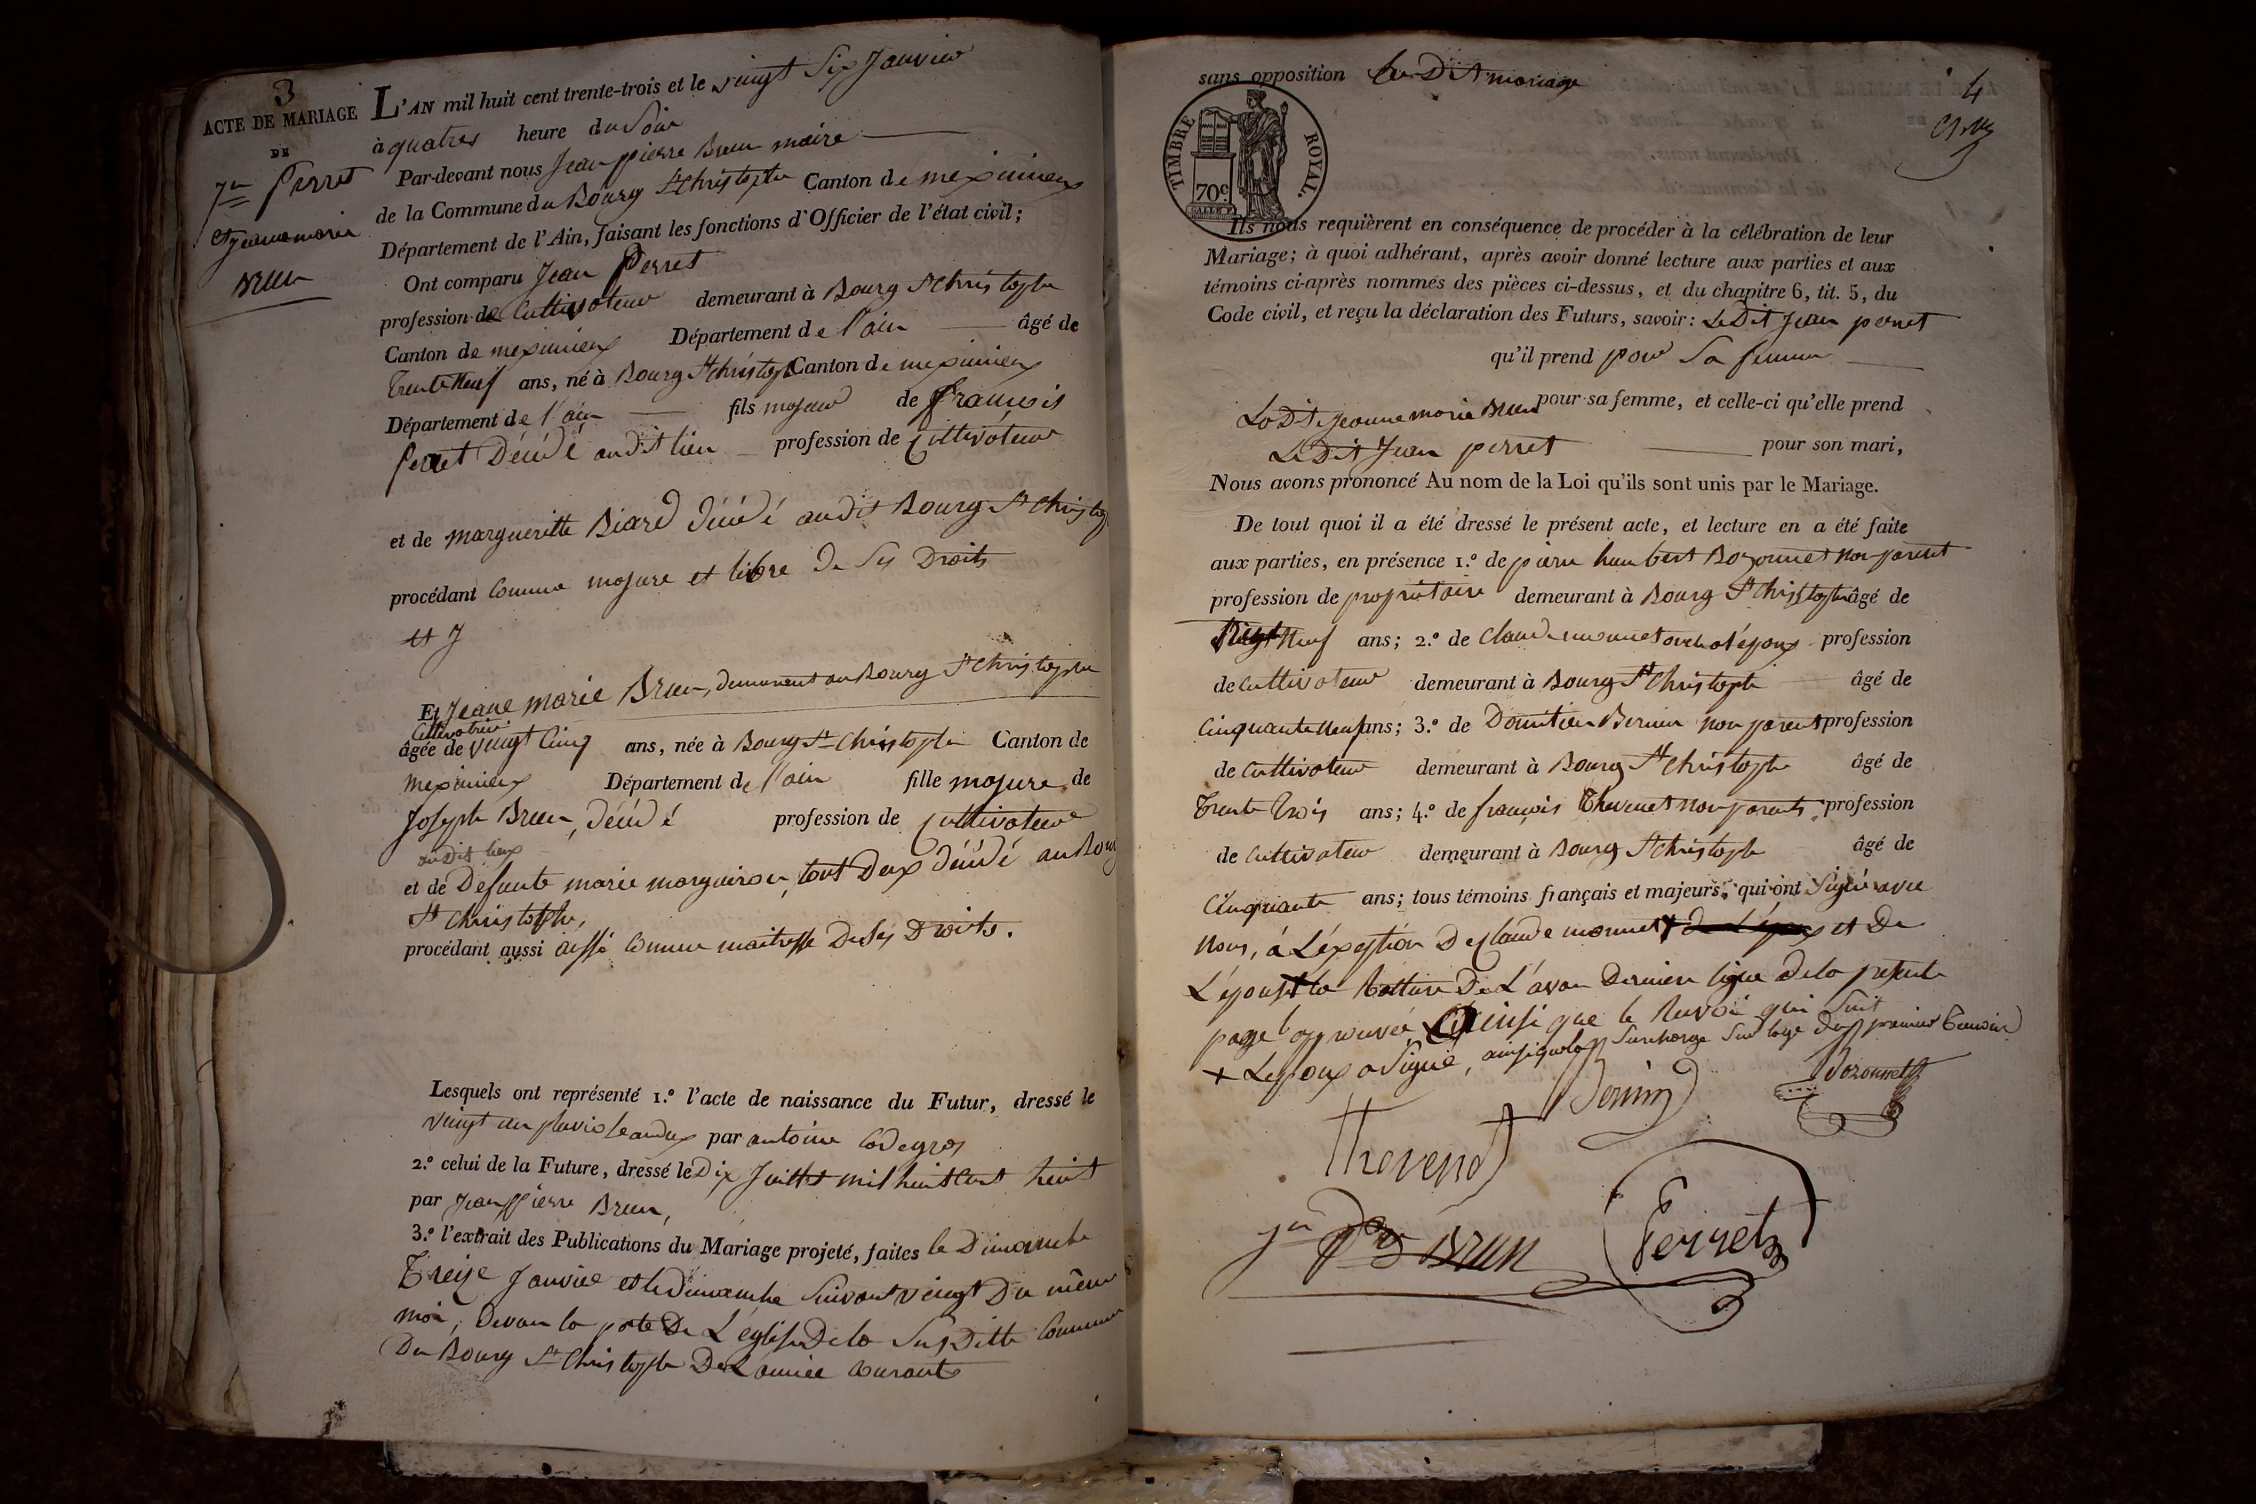 3
ACTE DE MARIAGE
DE
Jn Perret
et jeanne marie
Brun
L'AN mil huit cent trente-trois et le vingt Six Janvier
à quatres heure du Soir
Par-devant nous Jean pierre Brun maire
de la Commune du Bourg St Christophe Canton de meximieux
Département de l'Ain, faisant les fonctions d'Officier de l'état civil;
Ont comparu Jean Perret
profession de Cultivateur demeurant à Bourg St Christophe
Canton de meximieux Département de l'ain âgé de
trente Neuf ans, né à Bourg St Christophe Canton de meximieux
Département de l'ain fils majeur de françois
Perret Décédé audit lieu profession de Cultivateur
et de margueritte Biard décédé audit Bourg St Christophe
procédant Comme majure et libre de Ses Droits
et J
Et Jeane marie Brun, demeurent au Bourg St Christophe
Cultivatrice
âgée de vingt Cinq ans, née à Bourg St Christophe Canton de
meximieux Département de l'ain fille majure de
Joseph Brun, décédé profession de Cultivateur
audit lieux
et de Defunte marie morguiron, tout Deux décédé au Bourg
St Christophe,
procédant aussi aussé Comme maitresse De Ses Droits.
Lesquels ont représenté 1.º l'acte de naissance du Futur, dressé le
vingt un pluviose an deux par antoine
2.º celui de la Future, dressé le Dix Juillet mil huit Cent huit
par Jean pierre Brun,
3.º l'extrait des Publications du Mariage projeté, faites le Dimanche
Treize Janvier et le Dimanche Suivant vingt Du même
moi, Devan la porte De L'église De la Sus Ditte Commune
Du Bourg St Christophe De L'année Courante
sans opposition Le Dit mariage
4
TIMBRE ROYAL.
70c
Ils nous requièrent en conséquence de procéder à la célébration de leur
Mariage; à quoi adhérant, après avoir donné lecture aux parties et aux
témoins ci-après nommés des pièces ci-dessus, et du chapitre 6, tit. 5, du
Code civil, et reçu la déclaration des Futurs, savoir: Le Dit Jean perret
qu'il prend pour Sa femme
La Dite Jeanne marie Brun pour sa femme, et celle-ci qu'elle prend
Le Dit Jean perret pour son mari,
Nous avons prononcé Au nom de la Loi qu'ils sont unis par le Mariage.
De tout quoi il a été dressé le présent acte, et lecture en a été faite
aux parties, en présence 1.º de pierre humbert Bozonnet non parent
profession de propriétaire demeurant à Bourg St Christophe âgé de
Neuf ans; 2.º de Claude monnet profession
de Cultivateur demeurant à Bourg St Christophe âgé de
Cinquante Neuf ans; 3.º de Domitien Bernin non parent profession
de Cultivateur demeurant à Bourg St Christophe âgé de
Trente trois ans; 4.º de françois Thevenet non parents profession
de Cultivateur demeurant à Bourg St Christophe âgé de
Cinquante ans; tous témoins français et majeurs, qui ont Signé avec
Nous, à L'éxeption De Claude monnet et De
L'épouse la Rature De L'avan Dernière ligne de la presente
page approuvée ainsi que le Renvoi qui Suit
+ L'époux a Signé, ainsi que la Surcharge Sur lage du premier temoin
Bernin
Bozonnet
Thevenet
Jn Pre Brun
Perret